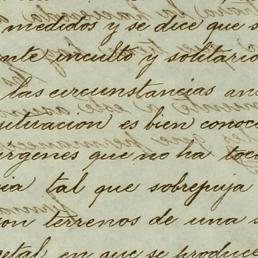 medidos y se dice que s
nte inculto y solitario
las circunstancias an
uturacion es bien conoc
irgenes que no ha toc
ia tal que sobrepuja
on terrenos de una s
etal, en que se produce